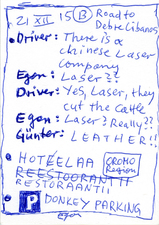 21 XII 15 (13) Road to
Debre Libanos
• Driver: There is a
chinese Laser
Company
Egon: Laser??
Driver: Yes, Laser, they
cut the Cattle
Egon: Laser? Really??
Günter: LEATHER!!
• HOTEELAA
OROMO
Region
REESTOORANTII
RESTORAANTII
P DONKEY PARKING
Egon